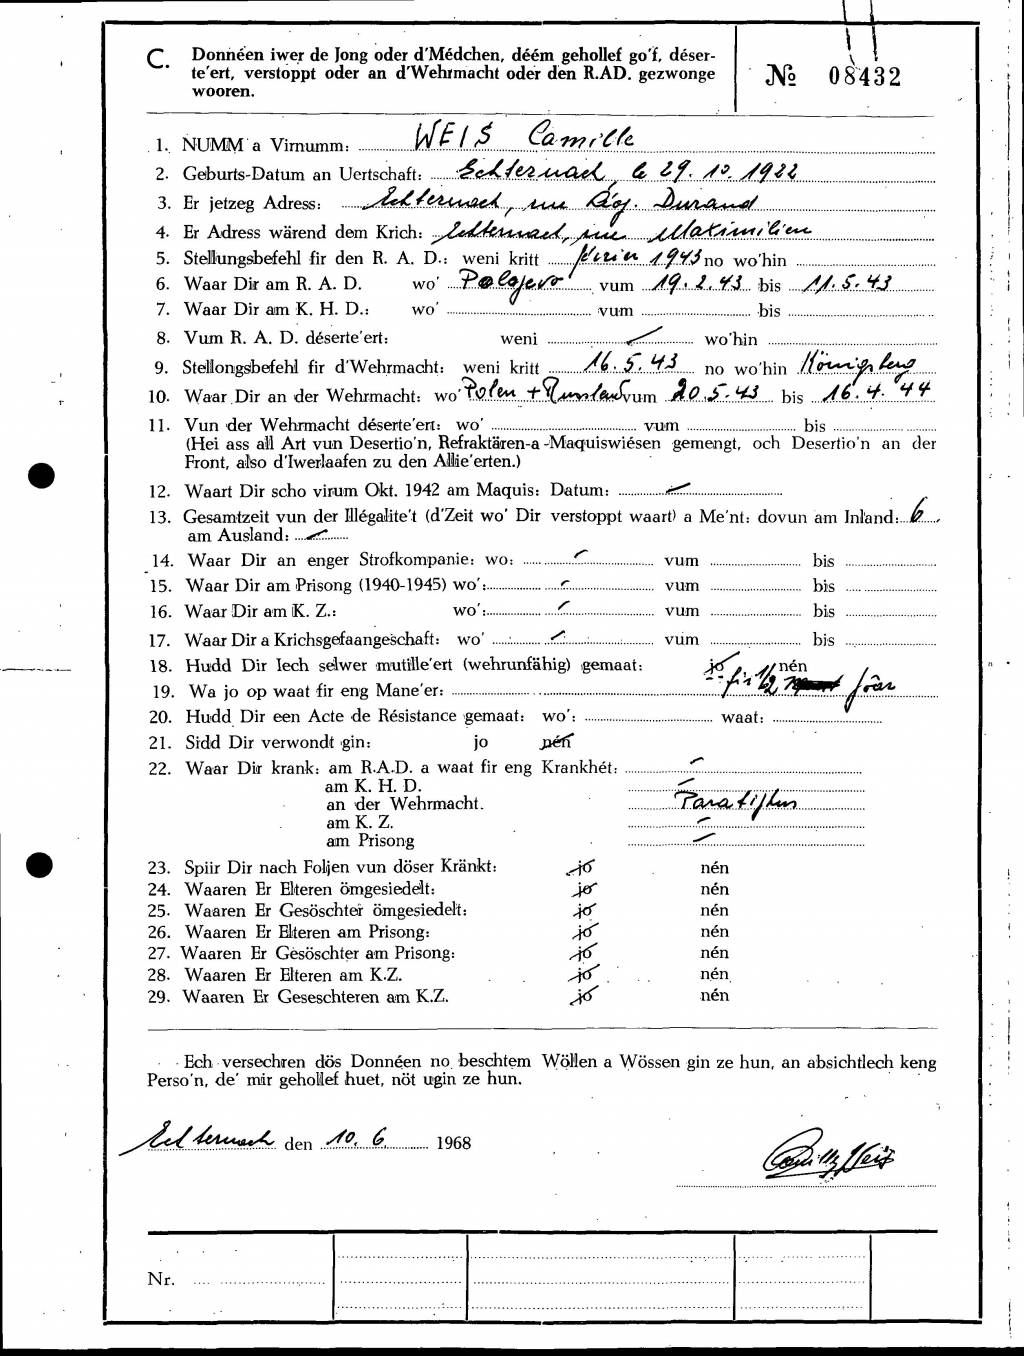 C. Donnéen iwer de Jong oder d'Médchen, déém gehollef go'f, déser-
te'ert, verstoppt oder an d'Wehrmacht oder den R.AD. gezwonge
wooren.
№ 08432
1. NUMM a Virnumm: WEIS Camille
2. Geburts-Datum an Uertschaft: Echternach, le 29. 10. 1922
3. Er jetzeg Adress: Echternach, rue Durand
4. Er Adress wärend dem Krich: Echternach, rue Maximilien
5. Stellungsbefehl fir den R. A. D.: weni kritt 1943 no wo'hin
6. Waar Dir am R. A. D. wo' Polajevo vum 19. 2. 43 bis 11. 5. 43
7. Waar Dir am K. H. D.: wo' vum bis
8. Vum R. A. D. déserte'ert: weni wo'hin
9. Stellongsbefehl fir d'Wehrmacht: weni kritt 16. 5. 43 no wo'hin Königsberg
10. Waar Dir an der Wehrmacht: wo' Polen + Russland vum 20.5.43 bis 16.4.44
11. Vun der Wehrmacht déserte'ert: wo' vum bis
(Hei ass all Art vun Desertio'n, Refraktären-a-Maquiswiésen gemengt, och Desertio'n an der
Front, also d'Iwerlaafen zu den Allie'erten.)
12. Waart Dir scho virum Okt. 1942 am Maquis: Datum:
13. Gesamtzeit vun der Illégalite't (d'Zeit wo' Dir verstoppt waart) a Me'nt: dovun am Inland: 6
am Ausland:
14. Waar Dir an enger Strofkompanie: wo: vum bis
15. Waar Dir am Prisong (1940-1945) wo': vum bis
16. Waar Dir am K. Z.: wo': vum bis
17. Waar Dir a Krichsgefaangeschaft: wo' vum bis
18. Hudd Dir Iech selwer mutille'ert (wehrunfähig) gemaat: jo nén
fir 1/2 Joar
19. Wa jo op waat fir eng Mane'er:
20. Hudd Dir een Acte de Résistance gemaat: wo': waat:
21. Sidd Dir verwondt gin: jo nén
22. Waar Dir krank: am R.A.D. a waat fir eng Krankhét:
am K. H. D.
an der Wehrmacht. Paratiphus
am K. Z.
am Prisong
23. Spiir Dir nach Foljen vun döser Kränkt: jo nén
24. Waaren Er Elteren ömgesiedelt: jo nén
25. Waaren Er Gesöschter ömgesiedelt: jo nén
26. Waaren Er Elteren am Prisong: jo nén
27. Waaren Er Gesöschter am Prisong: jo nén
28. Waaren Er Elteren am K.Z. jo nén
29. Waaren Er Geseschteren am K.Z. jo nén
Ech versechren dös Donnéen no beschtem Wöllen a Wössen gin ze hun, an absichtlech keng
Perso'n, de' mir gehollef huet, nöt ugin ze hun.
Echternach den 10. 6. 1968
Camille Weis
Nr.